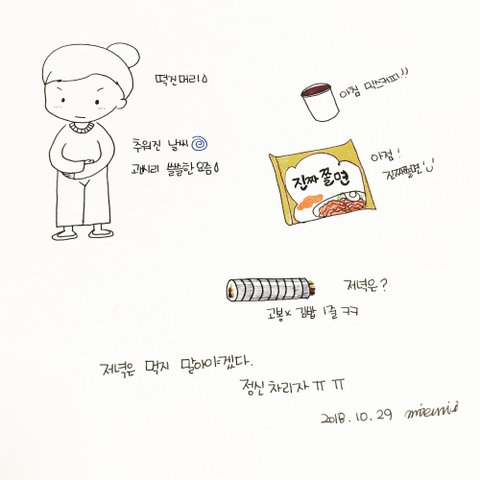 떡진머리
아침 믹스커피!!
추워진 날씨
괜시리 쓸쓸한 요즘
아점!
진짜쫄면
진짜쫄면
저녁은?
고봉× 김밥 1줄 ㅋㅋ
저녁은 먹지 말아야겠다.
정신 차리자 ㅠ ㅠ
2018.10.29